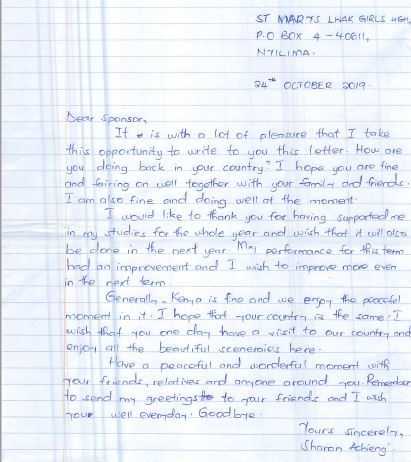 ST MARYS LWAK GIRLS HGH,
P.O BOX 4 - 40611,
NYILIMA.
24TH OCTOBER 2019.
Dear Sponsor,
It is with a lot of pleasure that I take
this opportunity to write to you this letter. How are
you doing back in your country? I hope you are fine
and fairing on well together with your family and friends.
I am also fine and doing well at the moment.
I would like to thank you for having supported me
in my studies for the whole year and wish that it will also
be done in the next year. My performance for this term
had an improvement and I wish to improve more even
in the next term.
Generally, Kenya is fine and we enjoy the peaceful
moment in it. I hope that your country is the same. I
wish that you one day have a visit to our country and
enjoy all the beautiful sceneries here.
Have a peaceful and wonderful moment with
your friends, relatives and anyone around you. Remember
to send my greetings to your friends and I wish
your well everyday. Goodbye.
Yours sincerely,
Sharon Achieng'.